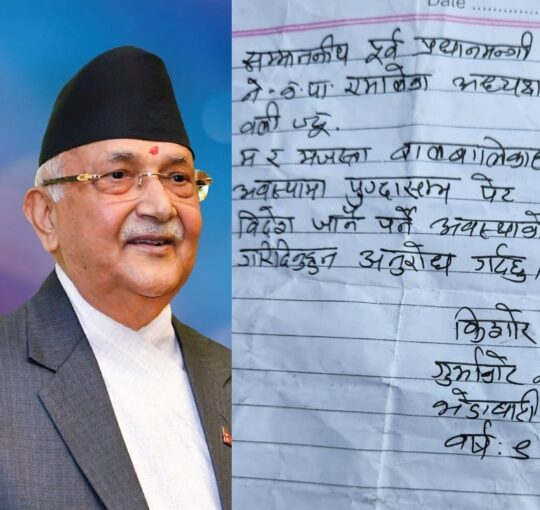 Date
सम्माननीय पूर्व प्रधानमन्त्री
ने. क. पा. एमालेका अध्यक्ष
वली ज्यू.
म र मजस्ता बालबालिका
अवस्थामा पुग्दासम्म पेट
विदेश जानै पर्ने अवस्थाको
गरिदिनुहुन अनुरोध गर्दछु।
किशोर
गुर्भाकोट
भेडाबारी
वर्ष: ९